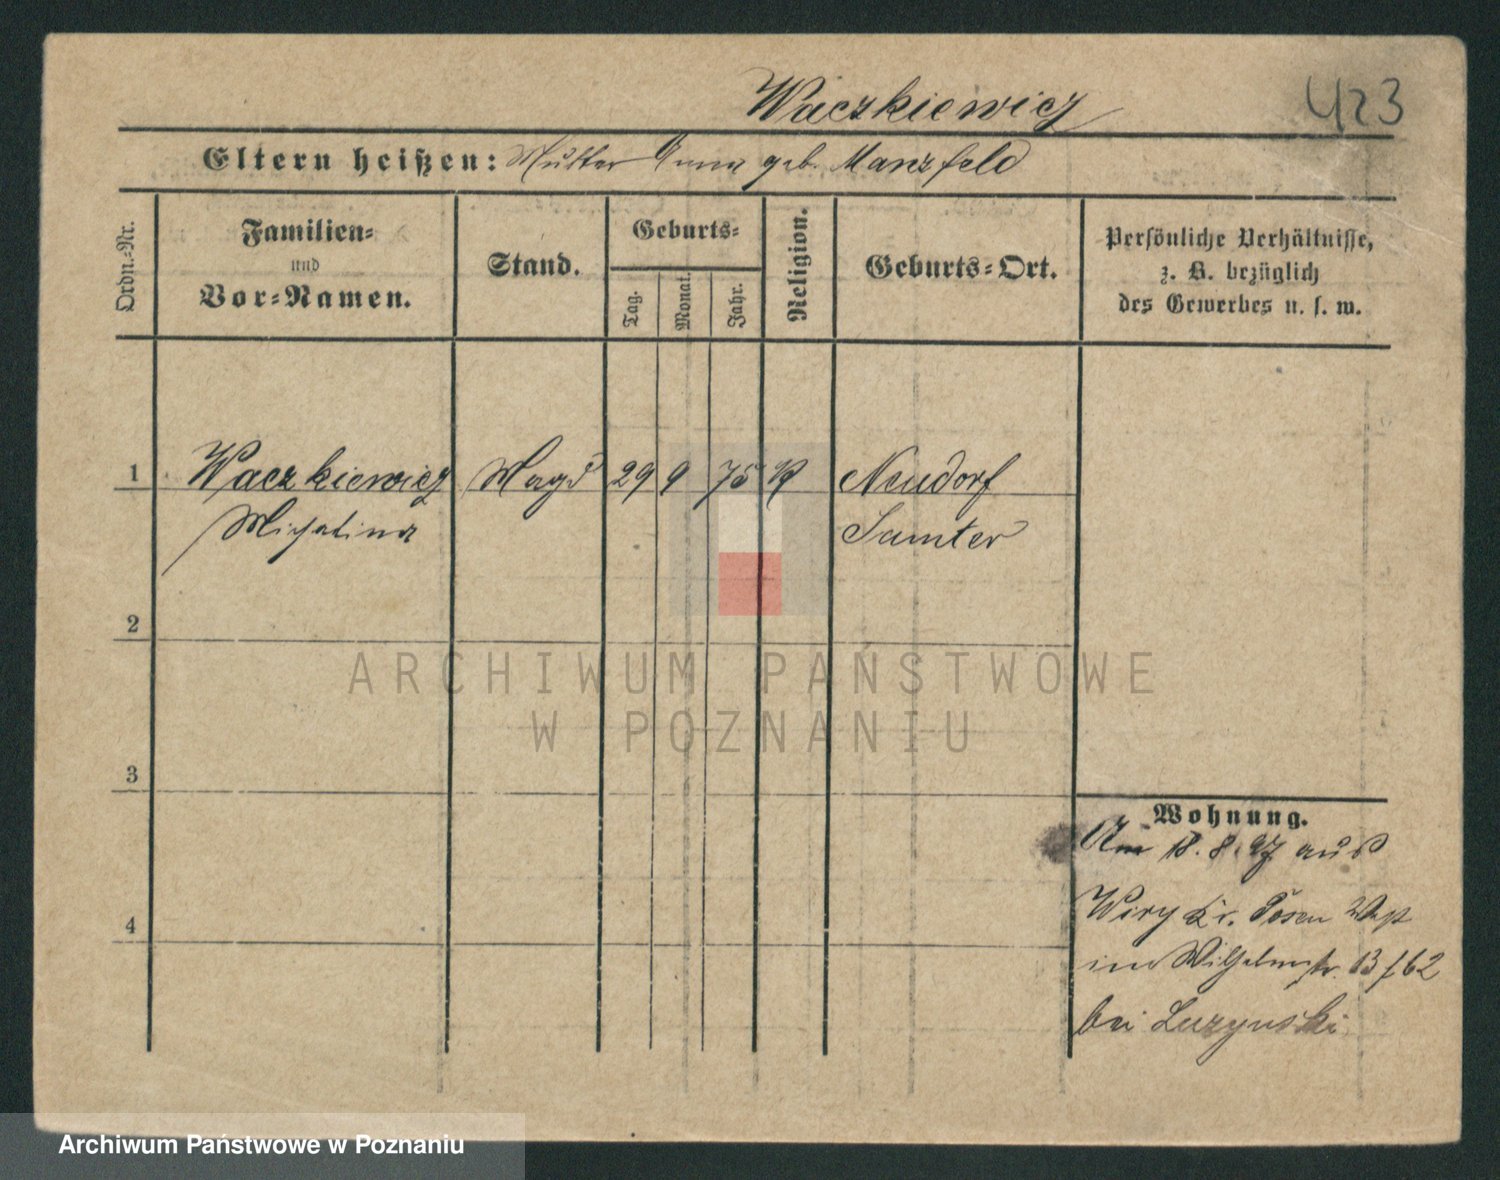 Waczkiewicz
423
Eltern heißen: Mutter Anna geb. Manzfeld
Ordn.-Nr.
Familien-
und
Vor-Namen.
Stand.
Geburts-
Tag.
Monat.
Jahr.
Religion.
Geburts-Ort.
Persönliche Verhältnisse,
z. B. bezüglich
des Gewerbes u. s. w.
1 Waczkiewicz Magd 29 9 75 K Neudorf
Michalina Samter
2
3
4
Wohnung.
Am 18. 8. 97 aus
Wiry Kr. Posen West
in Wilhelmstr. 13
bei Luzynski
ARCHIWUM PAŃSTWOWE
W POZNANIU
Archiwum Państwowe w Poznaniu